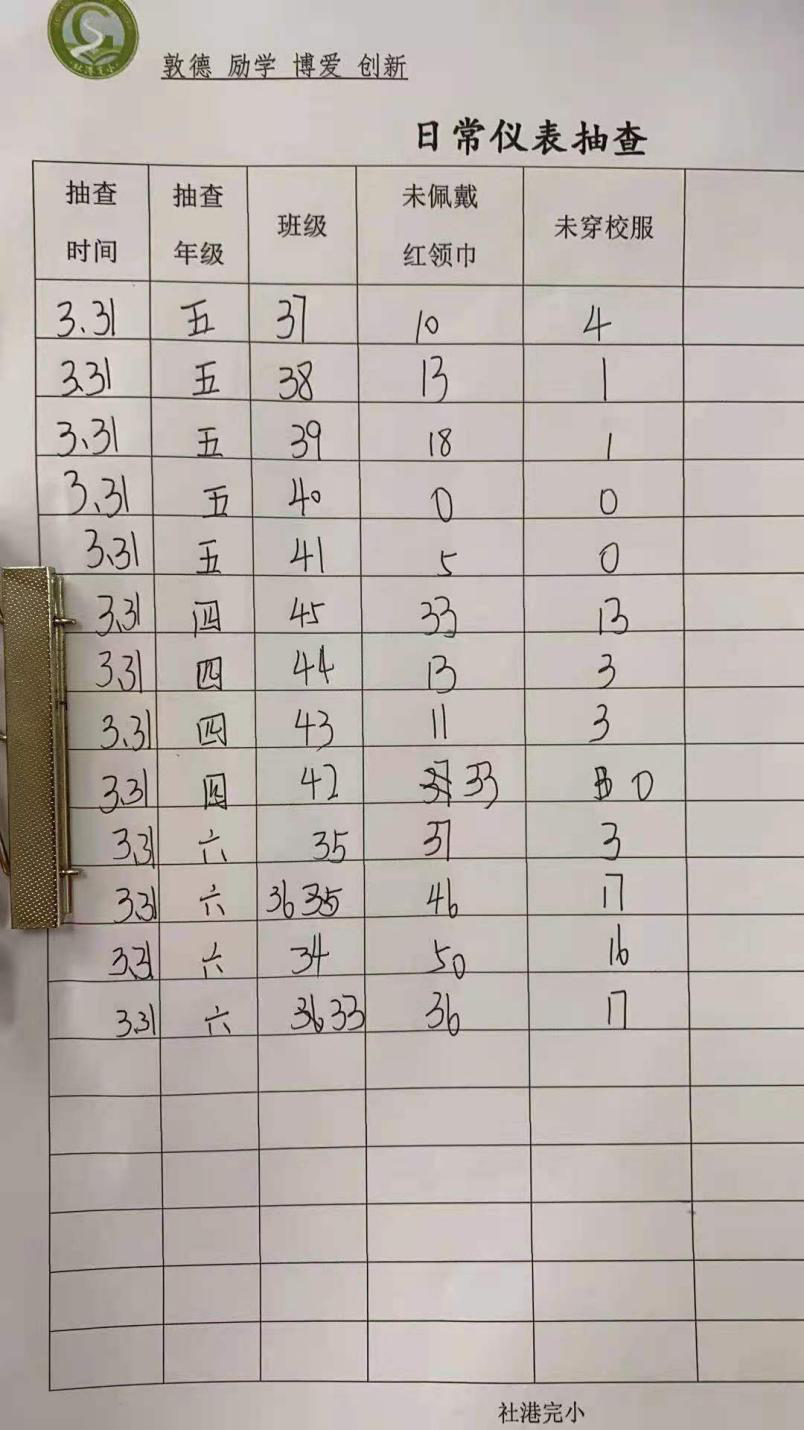 社港完小
敦德 励学 博爱 创新
日常仪表抽查
抽查时间 抽查年级 班级 未佩戴红领巾 未穿校服
3.31 五 37 10 4
3.31 五 38 13 1
3.31 五 39 18 1
3.31 五 40 0 0
3.31 五 41 5 0
3.31 四 45 33 13
3.31 四 44 13 3
3.31 四 43 11 3
3.31 四 42 33 0
3.31 六 35 37 3
3.31 六 36 46 17
3.31 六 34 50 16
3.31 六 33 36 17
社港完小